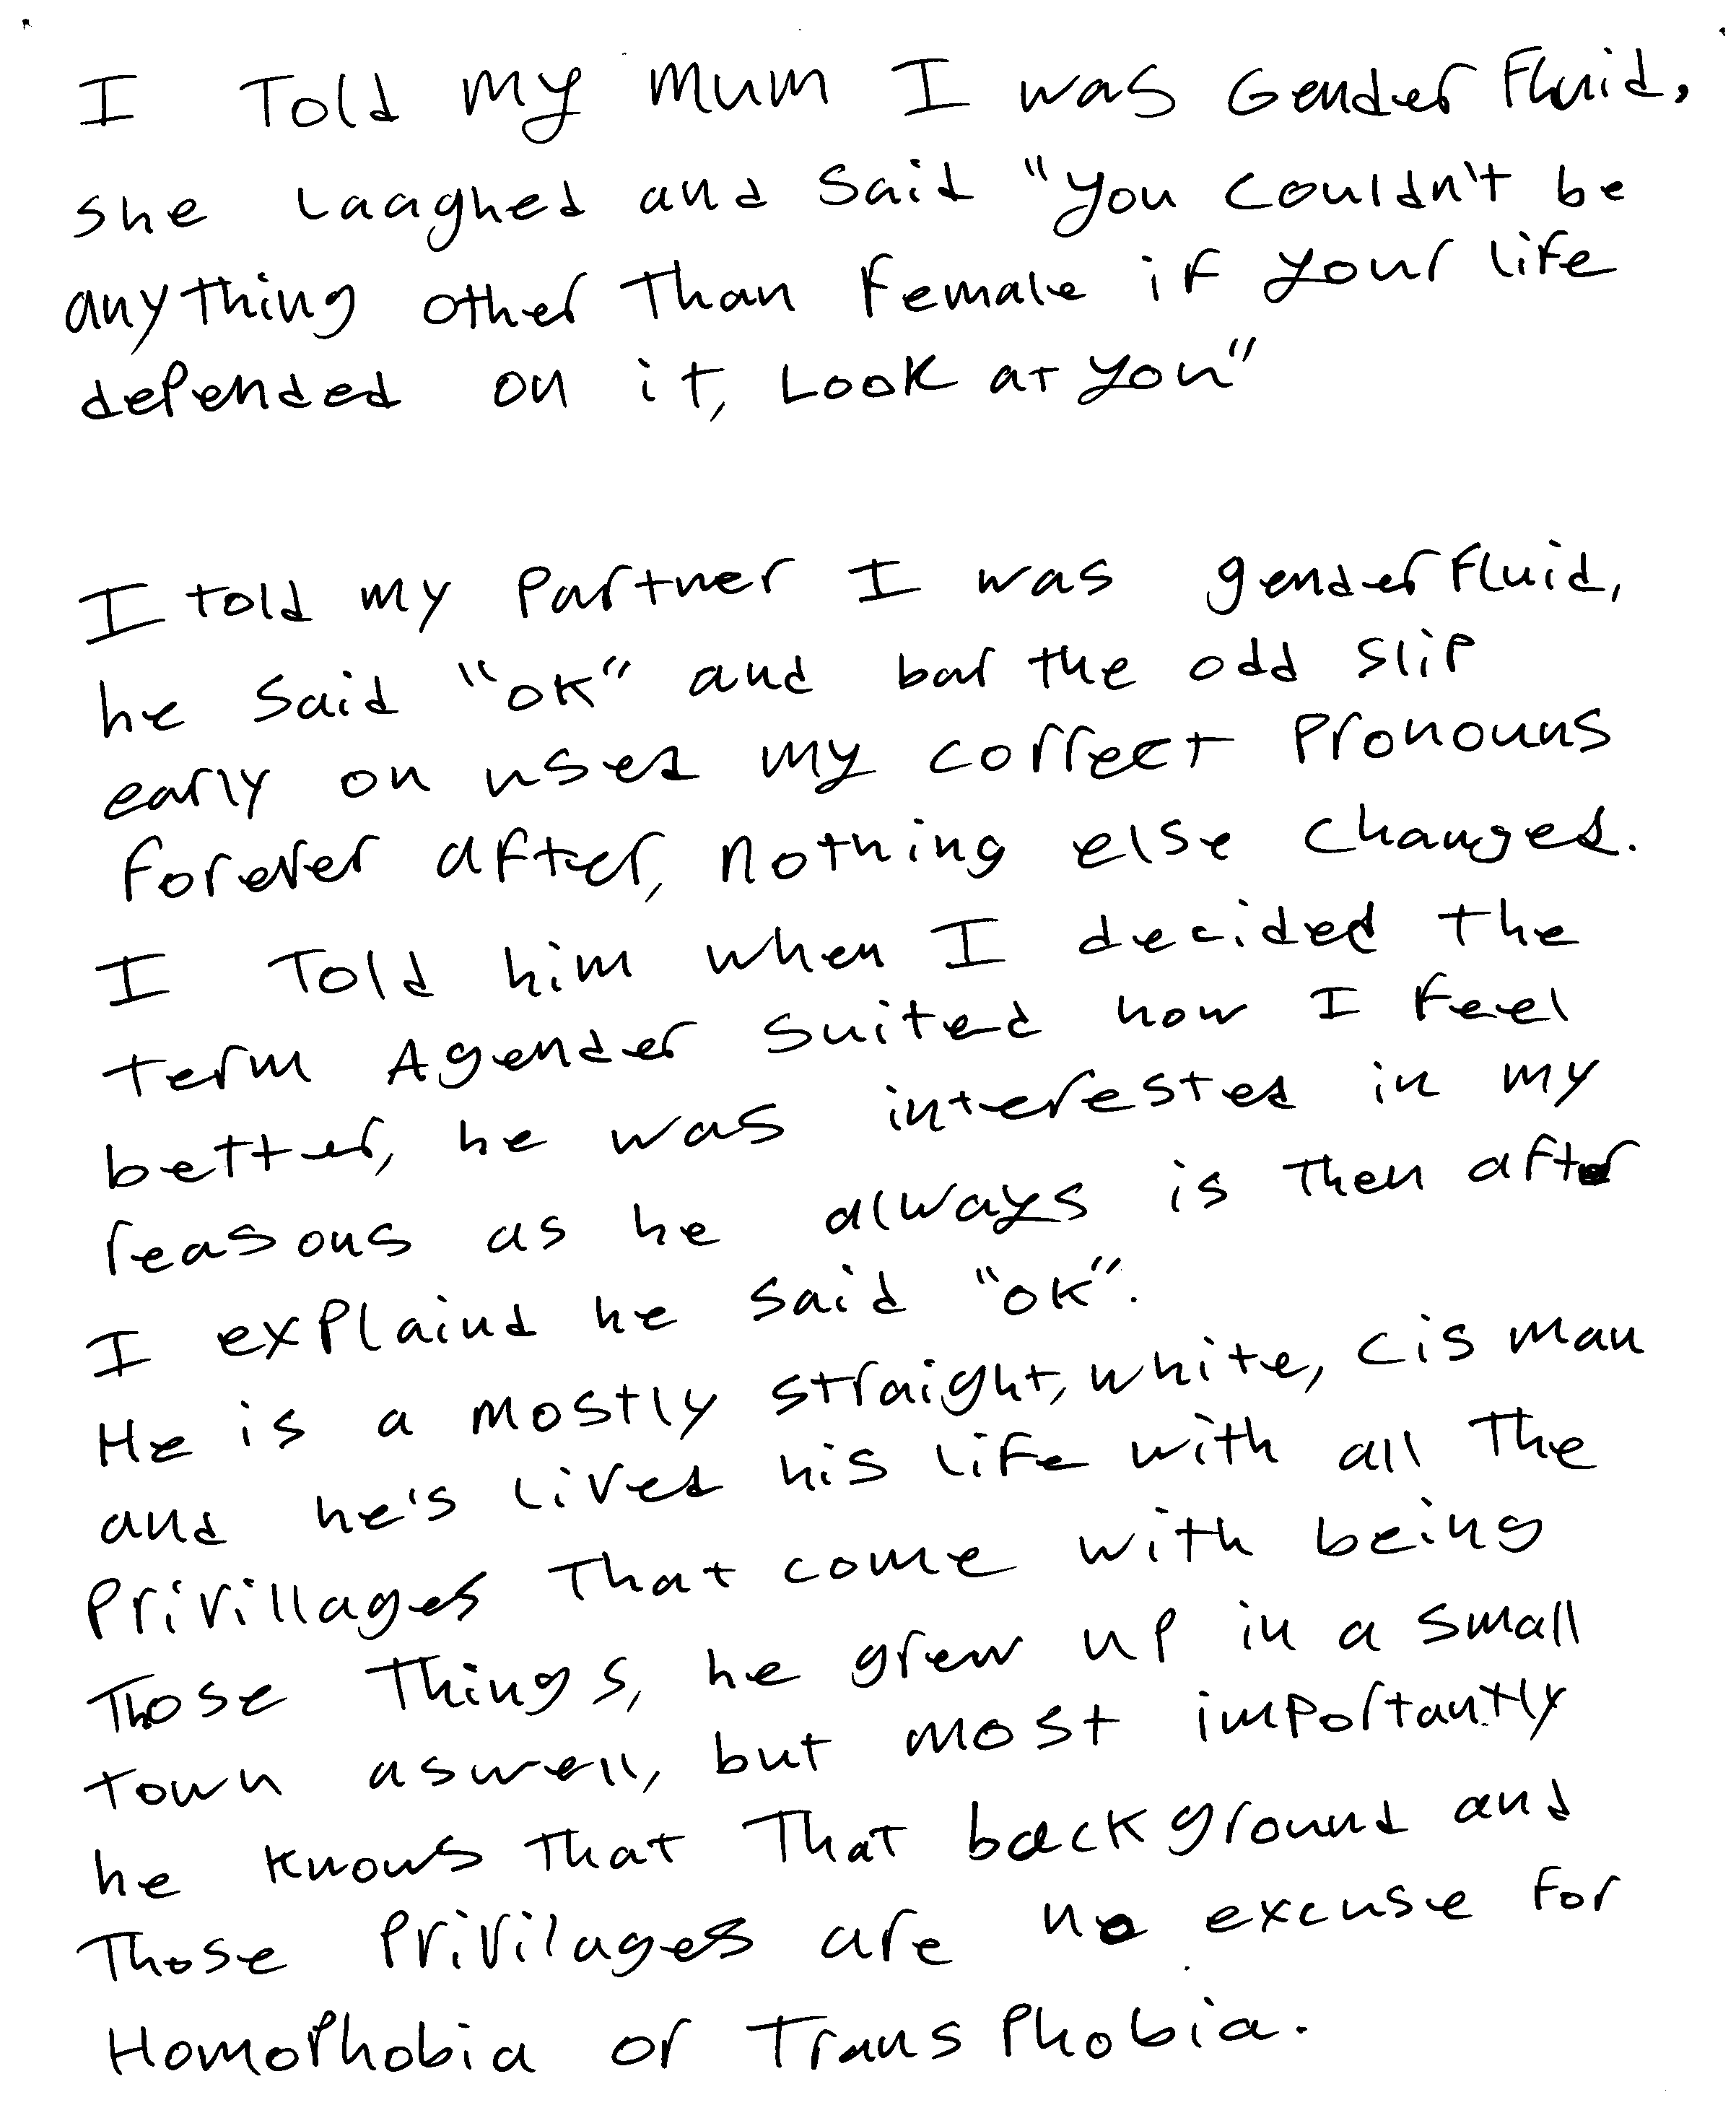 I Told my mum I was Gender Fluid,
she Laaghed and said "you couldn't be
anything other Than Female if your life
depended on it, Look at you"
I told my Partner I was genderfluid,
he said "OK" and bar the odd slip
early on used my correct Pronouns
forever after, nothing else changed.
I Told him when I decided the
term Agender suited how I feel
better, he was interested in my
reasons as he always is Then after
I explaind he said "OK".
He is a mostly straight, white, cis man
and he's lived his life with all The
Privillages That come with being
Those Things, he grew up in a small
town aswell, but most importantly
he knows that That background and
Those Privilages are no excuse for
Homophobia or TransPhobia.